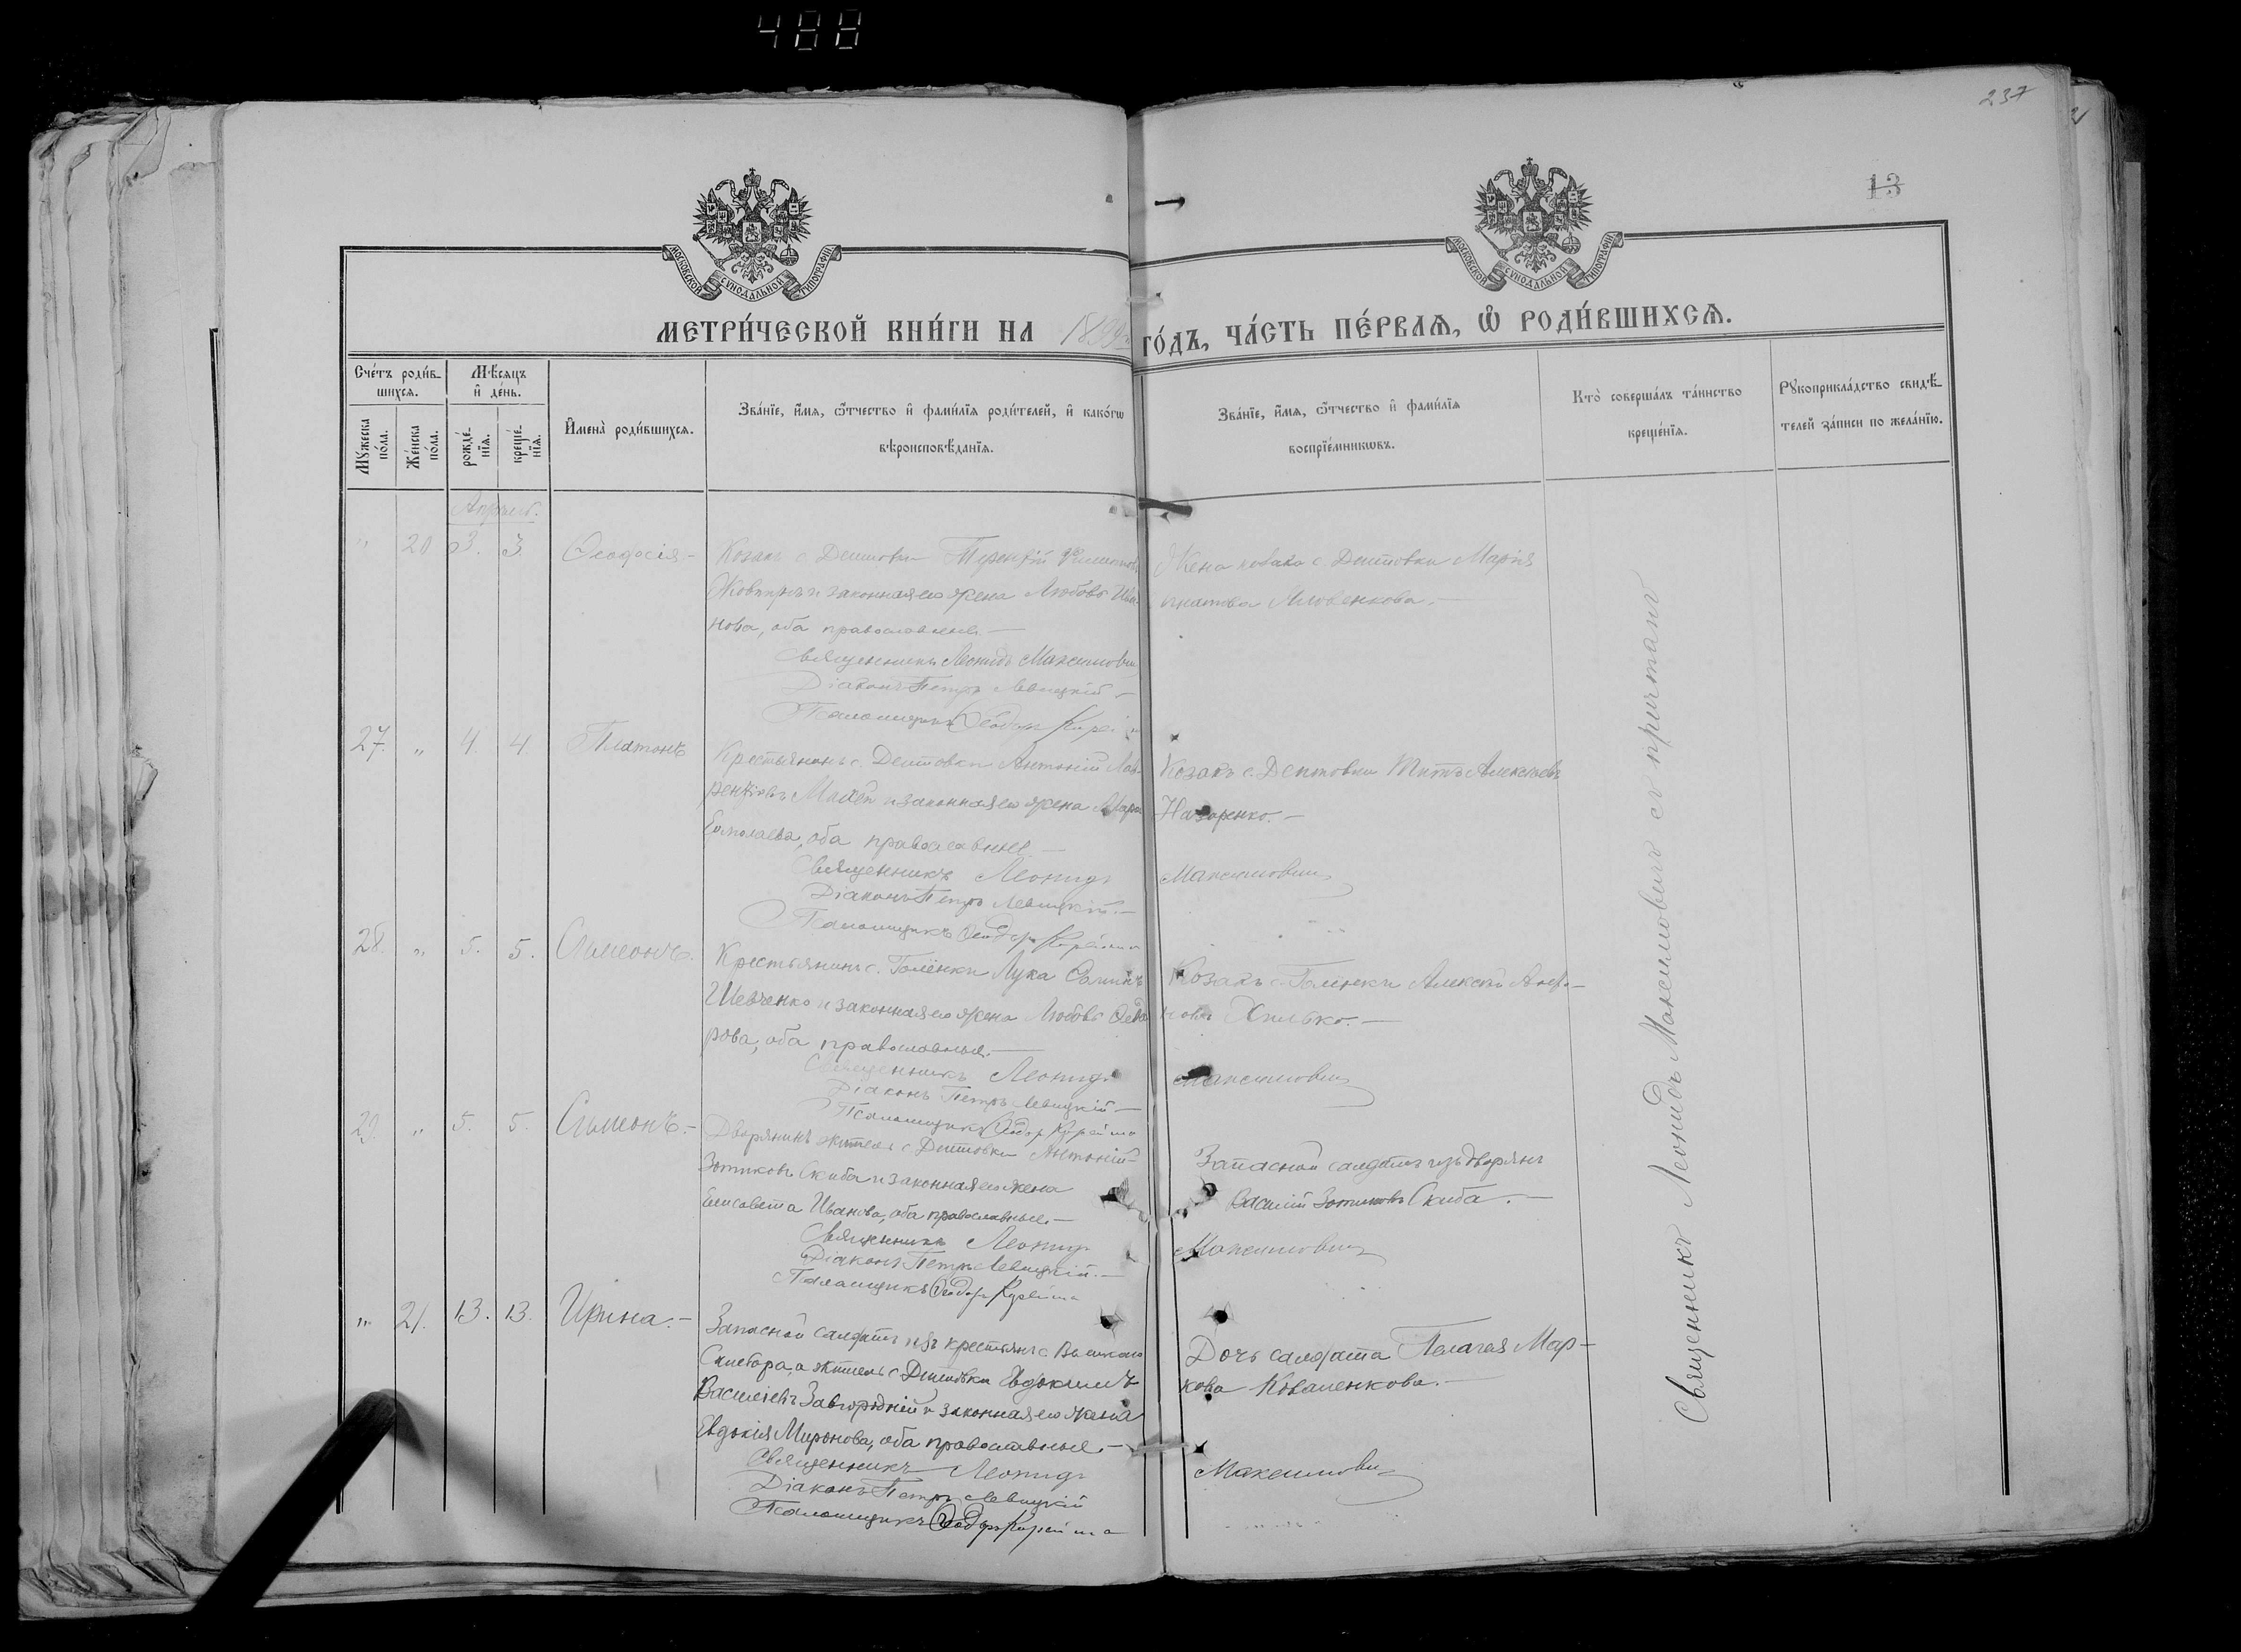 488
237
13
МОСКОВСКОЙ СѴНОДАЛЬНОЙ ТИПОГРАФІИ
МОСКОВСКОЙ СѴНОДАЛЬНОЙ ТИПОГРАФІИ
МЕТРИ́ЧЕСКОЙ КНИ́ГИ НА 1899 ГО́ДЪ, ЧА́СТЬ ПЕ́РВАѦ, Ѽ РОДИ́ВШИХСѦ.
Сче́тъ роди́в-
шихсѧ.
Мꙋжеска по́ла.
Же́нска по́ла.
Мѣ́сяцъ и де́нь.
рожде́-
нїѧ.
креще́-
нїѧ.
Имена̀ роди́вшихсѧ.
Зва́нїе, и́мѧ, ѻ́тчество и фами́лїѧ роди́телей, и како́гѡ
вѣроисповѣ́данїѧ.
Зва́нїе, и́мѧ, ѻ́тчество и фами́лїѧ
воспрїе́мникѡвъ.
Кто̀ соверша́лъ та́инство
креще́нїѧ.
Рꙋкоприкла́дство свидѣ́-
телей за́писи по жела́нїю.
Апрѣль.
" 20 3. 3 Ѳеодосія-
Козакъ с. Дептовки Терентій
Жовтиръ и законная его жена Любовь Ива-
нова, оба православные.—
Священникъ Леонидъ Максимовичъ
Діаконъ Петръ Левицкій.—
Псаломщикъ Ѳеодоръ
Жена козака с. Дептовки Марія
Игнатова
27. " 4. 4 Платонъ
Крестьянинъ с. Дептовки Антоній Лав-
рентіевъ Малѣй и законная его жена Марія
Ермолаева, оба православные.—
Священникъ Леонидъ Максимовичъ
Діаконъ Петръ Левицкій.—
Псаломщикъ Ѳеодоръ
Козакъ с. Дептовки Титъ Алексѣевъ
Назаренко.—
28. " 5. 5. Сѵмеонъ.
Крестьянинъ с. Голёнки Лука
Шевченко и законная его жена Любовь Ѳеодо-
рова, оба православные.—
Священникъ Леонидъ Максимовичъ
Діаконъ Петръ Левицкій—
Псаломщикъ Ѳеодоръ
Козакъ с. Голёнки Алексѣй
Хилько.—
29. " 5. 5. Сѵмеонъ.-
Дворянинъ житель с. Дептовки Антоній
Зотиковъ Скиба и законная его жена
Елисавета Иванова, оба православные.—
Священникъ Леонидъ Максимовичъ
Діаконъ Петръ Левицкій.—
Псаломщикъ Ѳеодоръ
Запасной солдатъ изъ дворянъ
Василій Зотиковъ Скиба.—
" 21. 13. 13. Ирина.-
Запасной солдатъ изъ крестьянъ с.
а житель с. Дептовки Евдокимъ
Василіевъ Завгородній и законная его жена
Евдокія Миронова, оба православные.—
Священникъ Леонидъ Максимовичъ
Діаконъ Петръ Левицкій
Псаломщикъ Ѳеодоръ
Дочь солдата Пелагея Мар-
кова Коваленкова.—
Священникъ Леонидъ Максимовичъ съ причтомъ